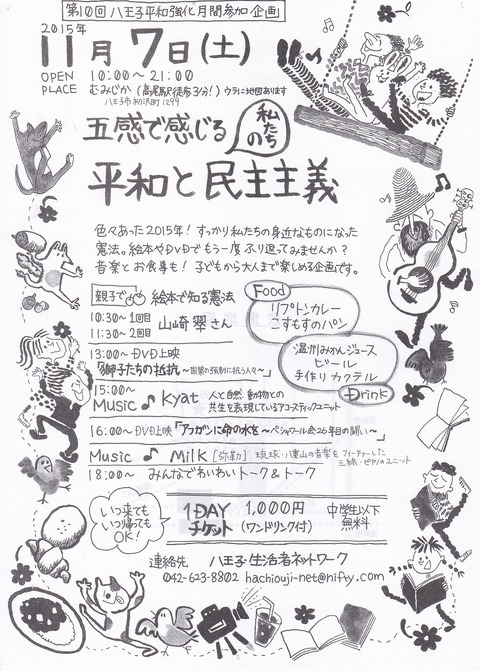 第10回 八王子平和強化月間参加企画
2015年
11月7日(土)
OPEN 10:00〜21:00
PLACE むみじか (高尾駅徒歩3分!) ウラに地図あります
八王子市初沢町1299
五感で感じる 私たちの
平和と民主主義
色々あった2015年! すっかり私たちの身近なものになった
憲法。絵本やDVDでもう一度ふり返ってみませんか?
音楽とお食事も! 子どもから大人まで楽しめる企画です。
親子で 絵本で知る憲法
10:30〜1回目
11:30〜2回目
山崎翠さん
Food
リプトンカレー
こすもすのパン
温州みかんジュース
ビール
手作りカクテル
Drink
13:00〜DVD上映
「獅子たちの抵抗〜国家の強制に抗う人々〜」
15:00〜
Music ♪ Kyat 人と自然、動物との
共生を表現しているアコースティックユニット
16:00〜DVD上映「アフガンに命の水を〜ペシャワール会26年目の闘い〜」
Music ♪ Milk [弥勒] 琉球・八重山の音楽をフィーチャーした
三線・ピアノのユニット
18:00〜 みんなでわいわいトーク&トーク
いつ来ても
いつ帰っても
OK!
1DAY チケット 1,000円 (ワンドリンク付)
中学生以下
無料
連絡先 八王子・生活者ネットワーク
042-623-8802 hachiouji-net@nifty.com